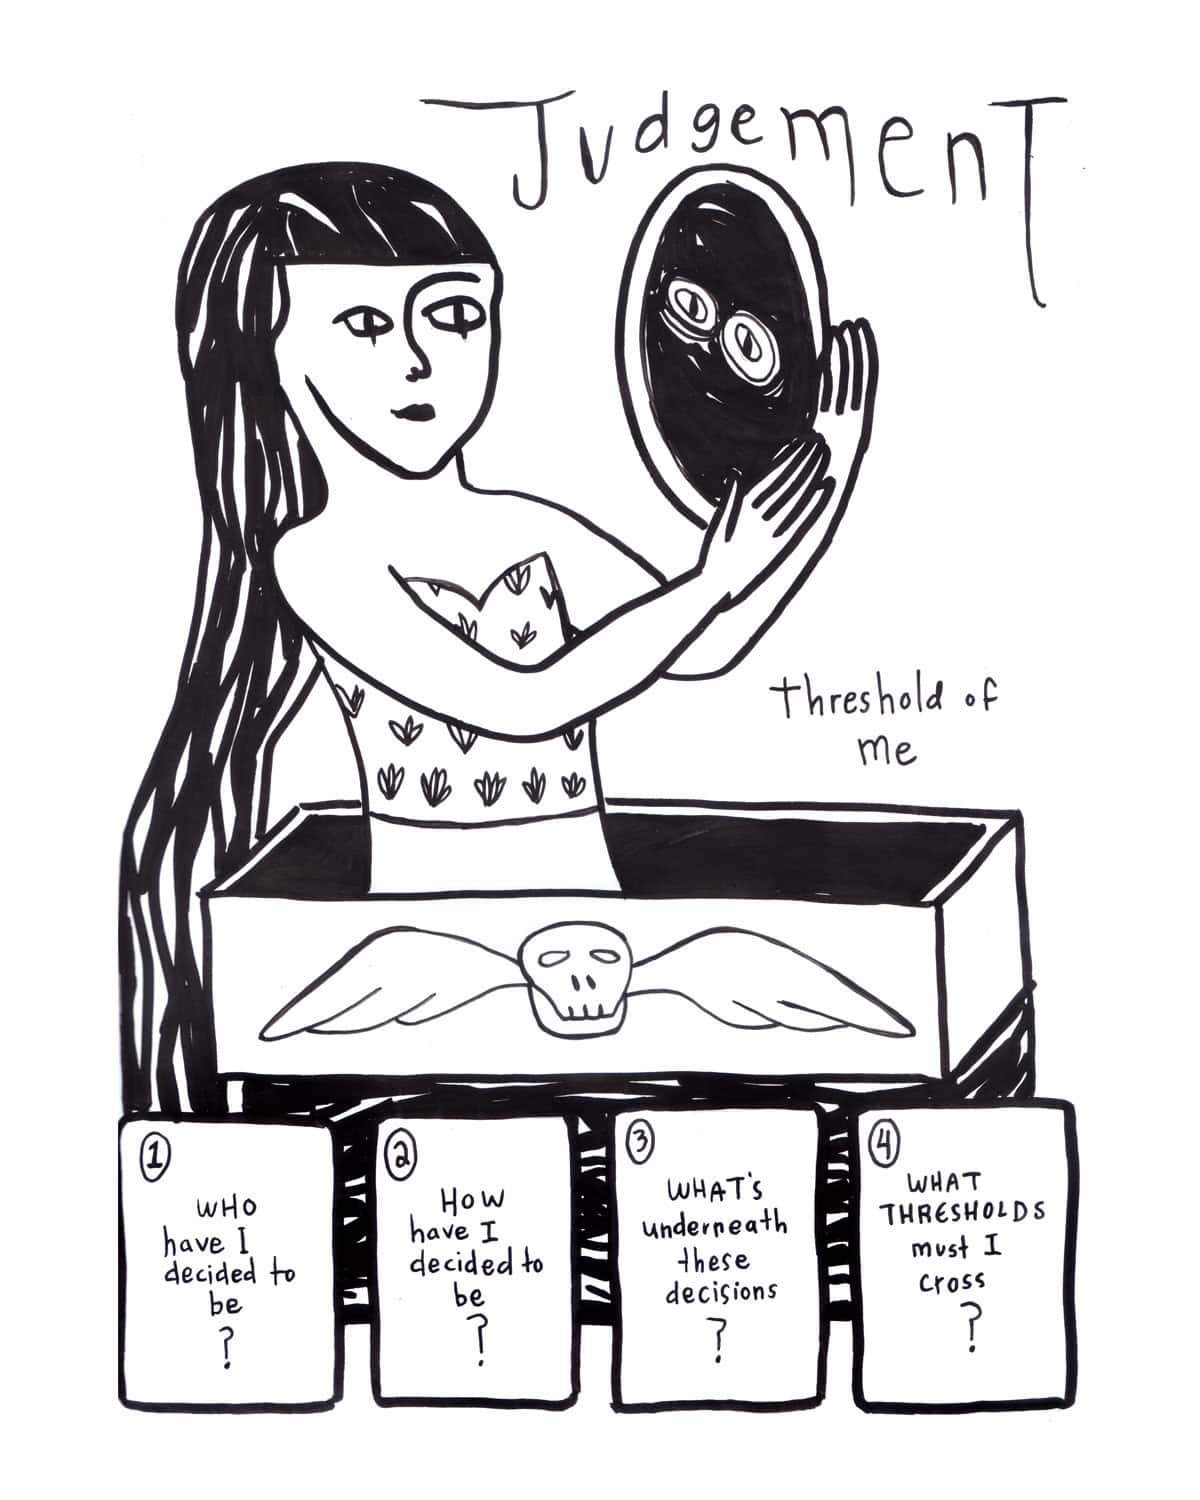 Judgement
threshold of
me
1
WHO
have I
decided to
be
?
2
HOW
have I
decided to
be
?
3
WHAT'S
underneath
these
decisions
?
4
WHAT
THRESHOLDS
must I
cross
?